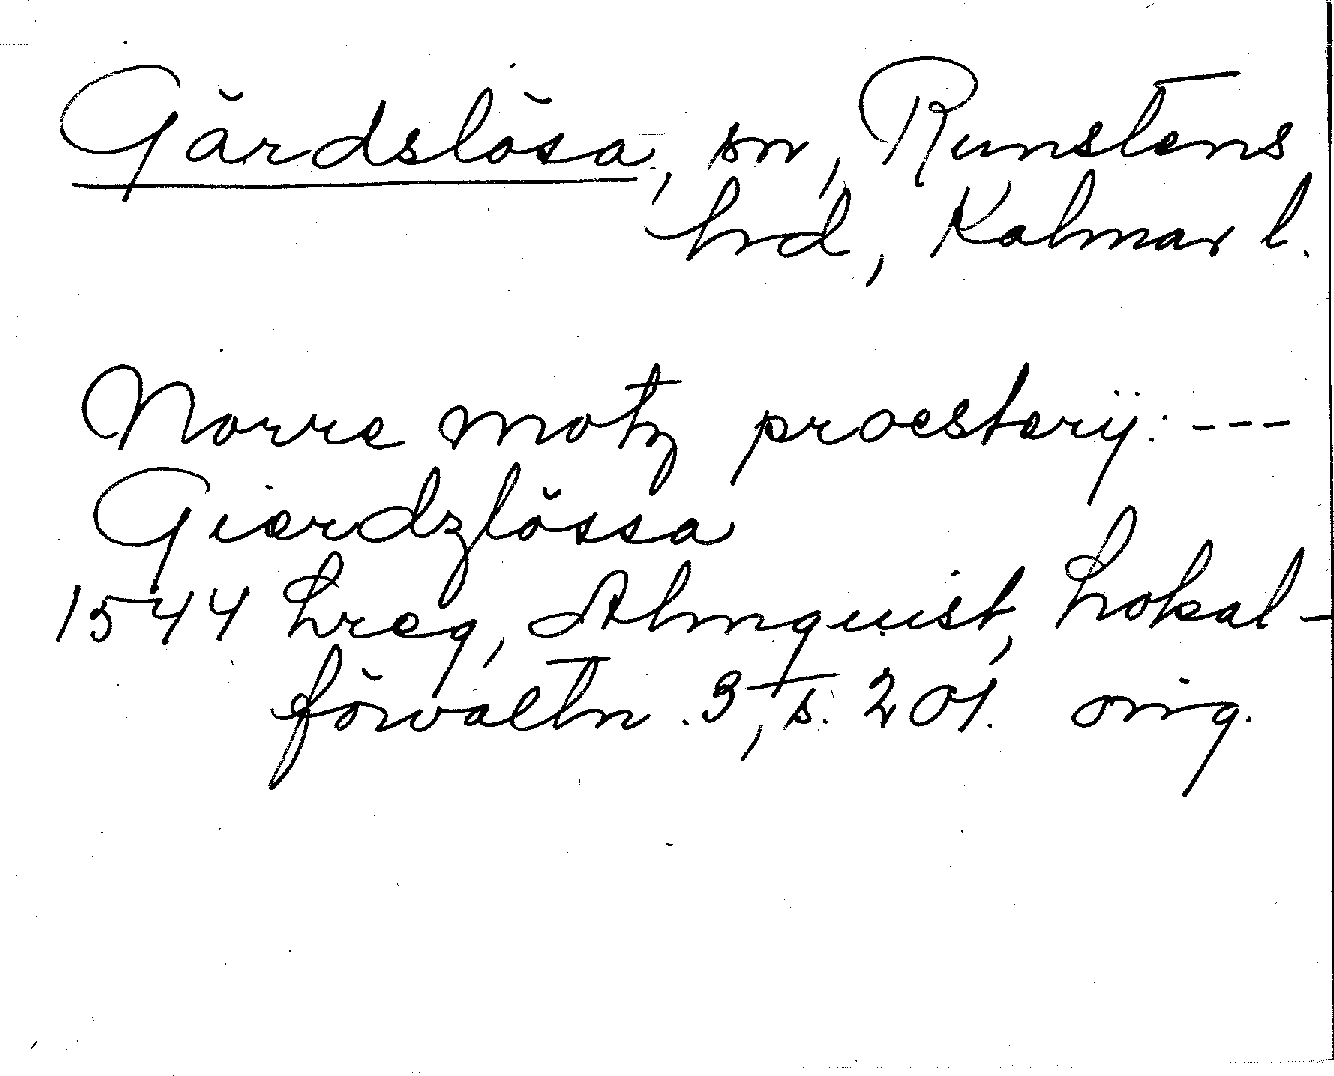 Gärdslösa, sn, Runstens
hrd, Kalmar l.
Norre motz proesterij: ---
Gierdzlössa
1544 Lreg, Almquist, Lokal-
förvaltn. 3, s. 201. orig.